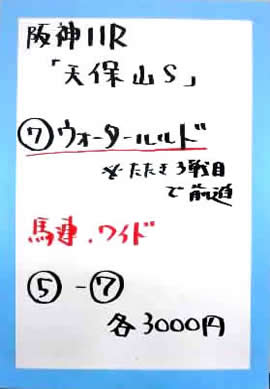 阪神11R
「天保山S」
⑦ウォータールルド
☆たたき3戦目
で前進
馬連.ワイド
⑤-⑦
各3000円